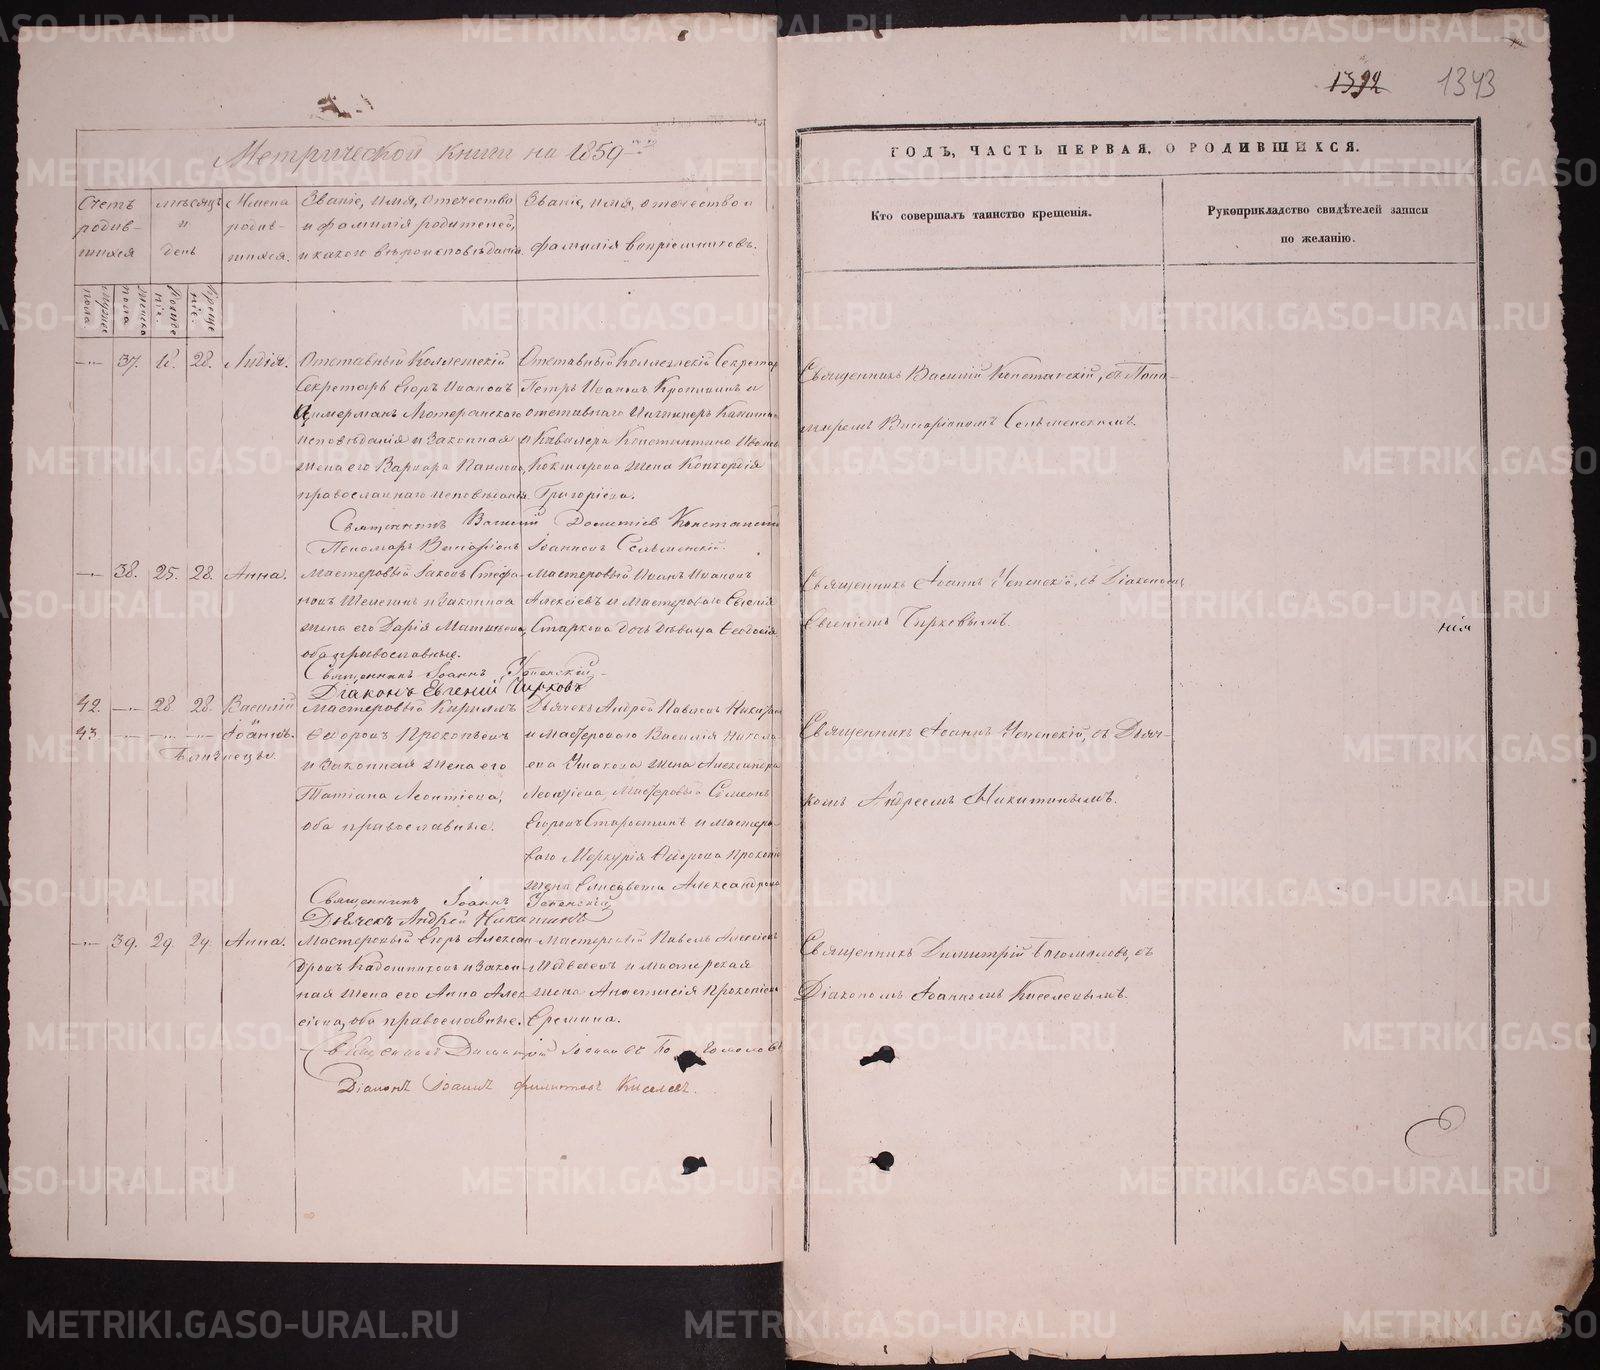 1392 1343
Метрической книги на 1859
ГОДЪ, ЧАСТЬ ПЕРВАЯ, О РОДИВШИХСЯ.
Счетъ родив-шихся
мѣсяцъ и день
Имена родив-шихся.
Званіе, имя, отечество и фамилія родителей, и какого вѣроисповѣданія.
Званіе, имя, отечество и фамилія воспріемниковъ.
Кто совершалъ таинство крещенія.
Рукоприкладство свидѣтелей записи
по желанію.
мужес пола.
женска пола
рожде ніе.
креще ніе.
37. 28. Лидія.
Отставный Коллежскій
Секретарь Егоръ Ивановъ
Цимерманъ Лютеранского
исповѣданія и законная
жена его Варвара Павлова,
православнаго исповѣданія
Отставный Коллежскій Секретар
Петръ Ивановъ
отставнаго Инженеръ Капита
и Кавалера Константина Иван
Кокшарова жена Конкордія
Григоріева.
Священникъ Василій
Священникъ Василій
Пономарь Іоанновъ
38. 25. 28. Анна.
Мастеровый Стефа-
новъ и законная
жена его Дарія Матвѣева,
оба православные.
Мастеровый Иванъ Ивановъ
Алексѣевъ и Мастероваго Евгенія
Старкова дочь дѣвица Ѳеодосія
Священникъ Іоаннъ Успенскій, съ Діакономъ
Евгеніемъ Чирковымъ.
нія
Священникъ Іоаннъ Успенскій
Діаконъ Евгеній Чирковъ
42. 28. 28. Василій
43. Іоаннъ.
Близнецы.
Мастеровый Кириллъ
Ѳедоровъ Прокопьевъ
и законная жена его
Татіана Леонтіева,
оба православные.
Дьячекъ Андрей Павловъ Никитин
и Мастероваго Василія Никола
ева Ушакова жена Александра
Леонтіева, Мастеровый Симеонъ
Егоровъ Старостинъ и мастеро
ваго Меркурія Ѳедорова Прокопье
жена Елисавета Александрова
Священникъ Іоаннъ Успенскій, съ Дьяч-
комъ Андреемъ Никитинымъ.
Священникъ Іоаннъ Успенскій
Дьячекъ Андрей Никитинъ
39. 29. 29. Анна.
Мастеровый Егоръ Алексан
дровъ и закон-
ная жена его Анна Алек
сіева, оба православные.
Мастеровый Павелъ Алексіевъ
Медведевъ и мастерская
жена Анастасія Прокопіева
Еремина.
Священникъ Димитрій съ
Діакономъ Іоанномъ Киселевымъ.
Священникъ Димитрій
Діаконъ Іоаннъ Киселевъ.
METRIKI.GASO-URAL.RU